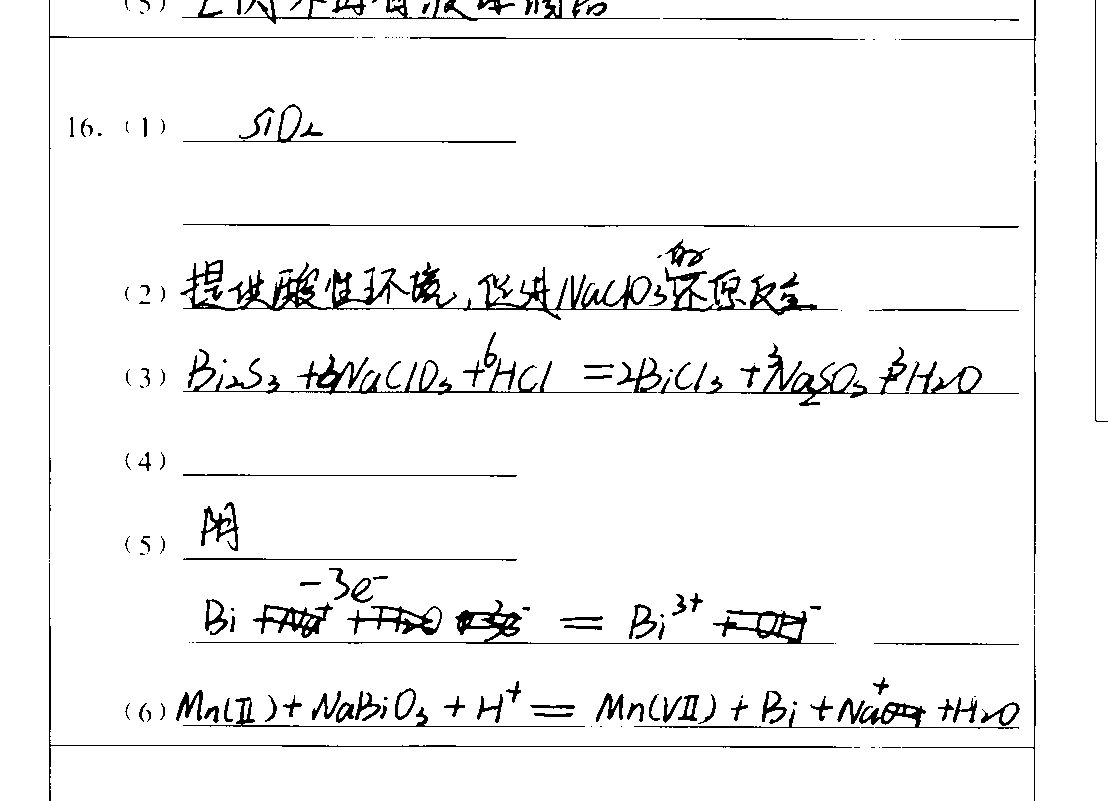 (5)
16. (1) SiO₂
(2) 提供酸性环境,促进NaClO₃的还原反应
(3) Bi₂S₃ +3NaClO₃ +6HCl =2BiCl₃ +3Na₂SO₃ +3H₂O
(4)
(5) 阴
-3e⁻
Bi = Bi³⁺
(6) Mn(II) + NaBiO₃ + H⁺ = Mn(VII) + Bi + Na⁺ +H₂O